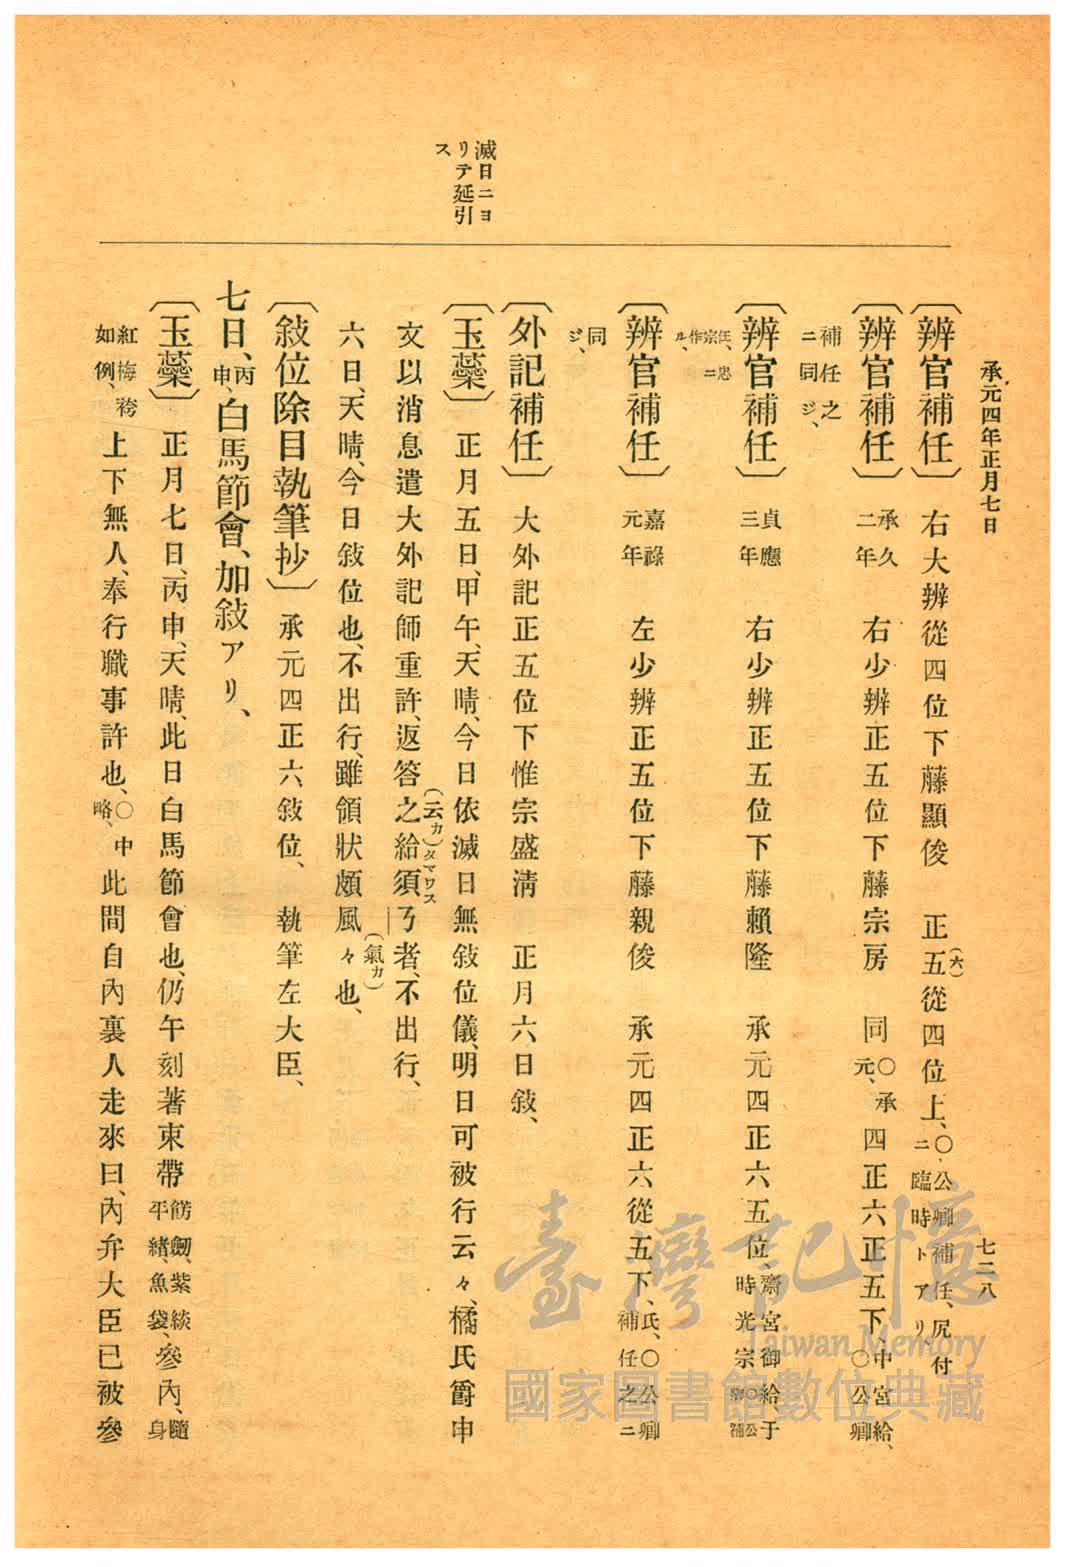 承元四年正月七日
七二八
滅日ニヨ
リテ延引
ス
〔辨官補任〕 右大辨從四位下藤顯俊 正五(六)從四位上、○公卿補任、尻付ニ臨時トアリ、
〔辨官補任〕 承久二年 右少辨正五位下藤宗房 同○承元、四正六正五下、中宮給、○公卿
補任之ニ同ジ、
〔辨官補任〕 貞應三年 右少辨正五位下藤賴隆 承元四正六五位 齋宮御給于時光宗○公卿補
任、宗忠ニ作ル、
〔辨官補任〕 嘉祿元年 左少辨正五位下藤親俊 承元四正六從五下、氏、○公卿補任之ニ
同ジ、
〔外記補任〕 大外記正五位下惟宗盛清 正月六日敍、
〔玉蘂〕 正月五日、甲午、天晴、今日依滅日無敍位儀、明日可被行云々、橘氏爵申
文以消息遣大外記師重許、返答之(云カ)給タマワス須ㄋ者、不出行、
六日、天晴、今日敍位也、不出行、雖領狀頗風々(氣カ)也、
〔敍位除目執筆抄〕 承元四正六、敍位、 執筆左大臣、
七日、丙申、白馬節會、加敍アリ、
〔玉蘂〕 正月七日、丙申、天晴、此日白馬節會也、仍午刻著束帶 餝劔、紫緂平緖、魚袋、參內、隨身
紅梅袴如例、上下無人、奉行職事許也、○中略、此間自內裏人走來曰、內弁大臣已被參
臺灣記憶
Taiwan Memory
國家圖書館數位典藏